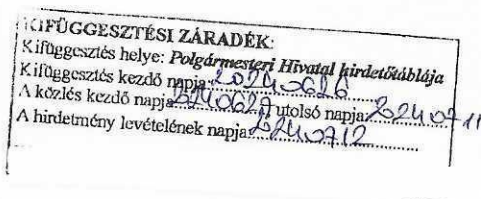 KIFÜGGESZTÉSI ZÁRADÉK:
Kifüggesztés helye: Polgármesteri Hivatal hirdetőtáblája
Kifüggesztés kezdő napja: 20240626
A közlés kezdő napja 2240627 utolsó napja: 2240711
A hirdetmény levételének napja: 2240712